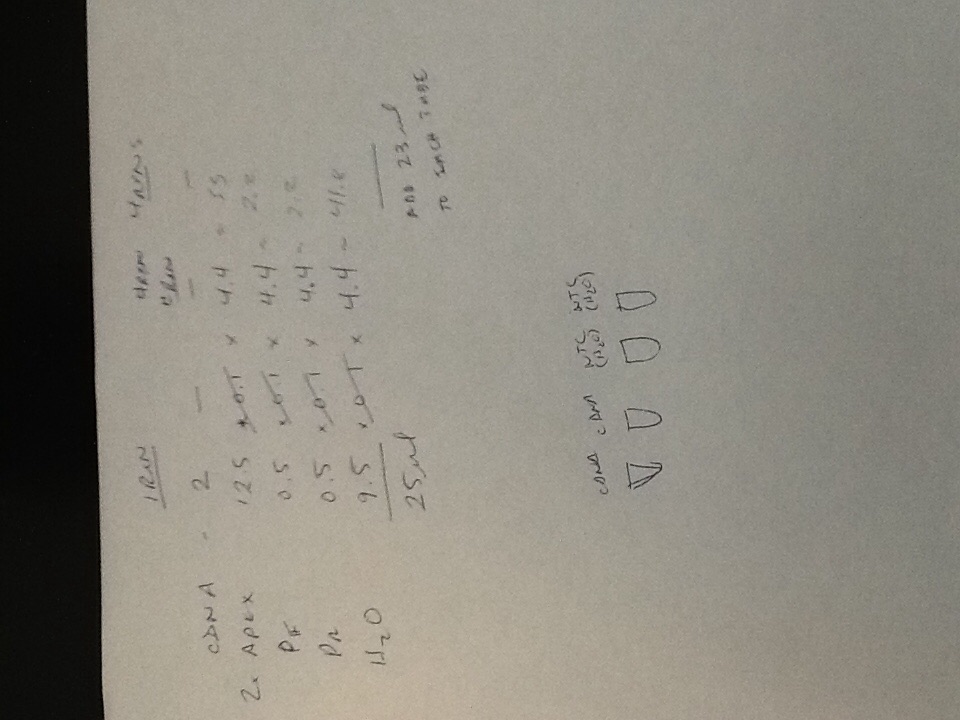 1 RXN 4 RXN 4 RXNS
RXN
cDNA - 2 — — —
2x APEX 12.5 x 0.1 x 4.4 = 55
PF 0.5 x 0.1 x 4.4 = 2.2
PR 0.5 x 0.1 x 4.4 = 2.2
H2O 9.5 x 0.1 x 4.4 = 41.8
25 ul
ADD 23 ul
TO EACH TUBE
cDNA cDNA NTC (H2O) NTC (H2O)